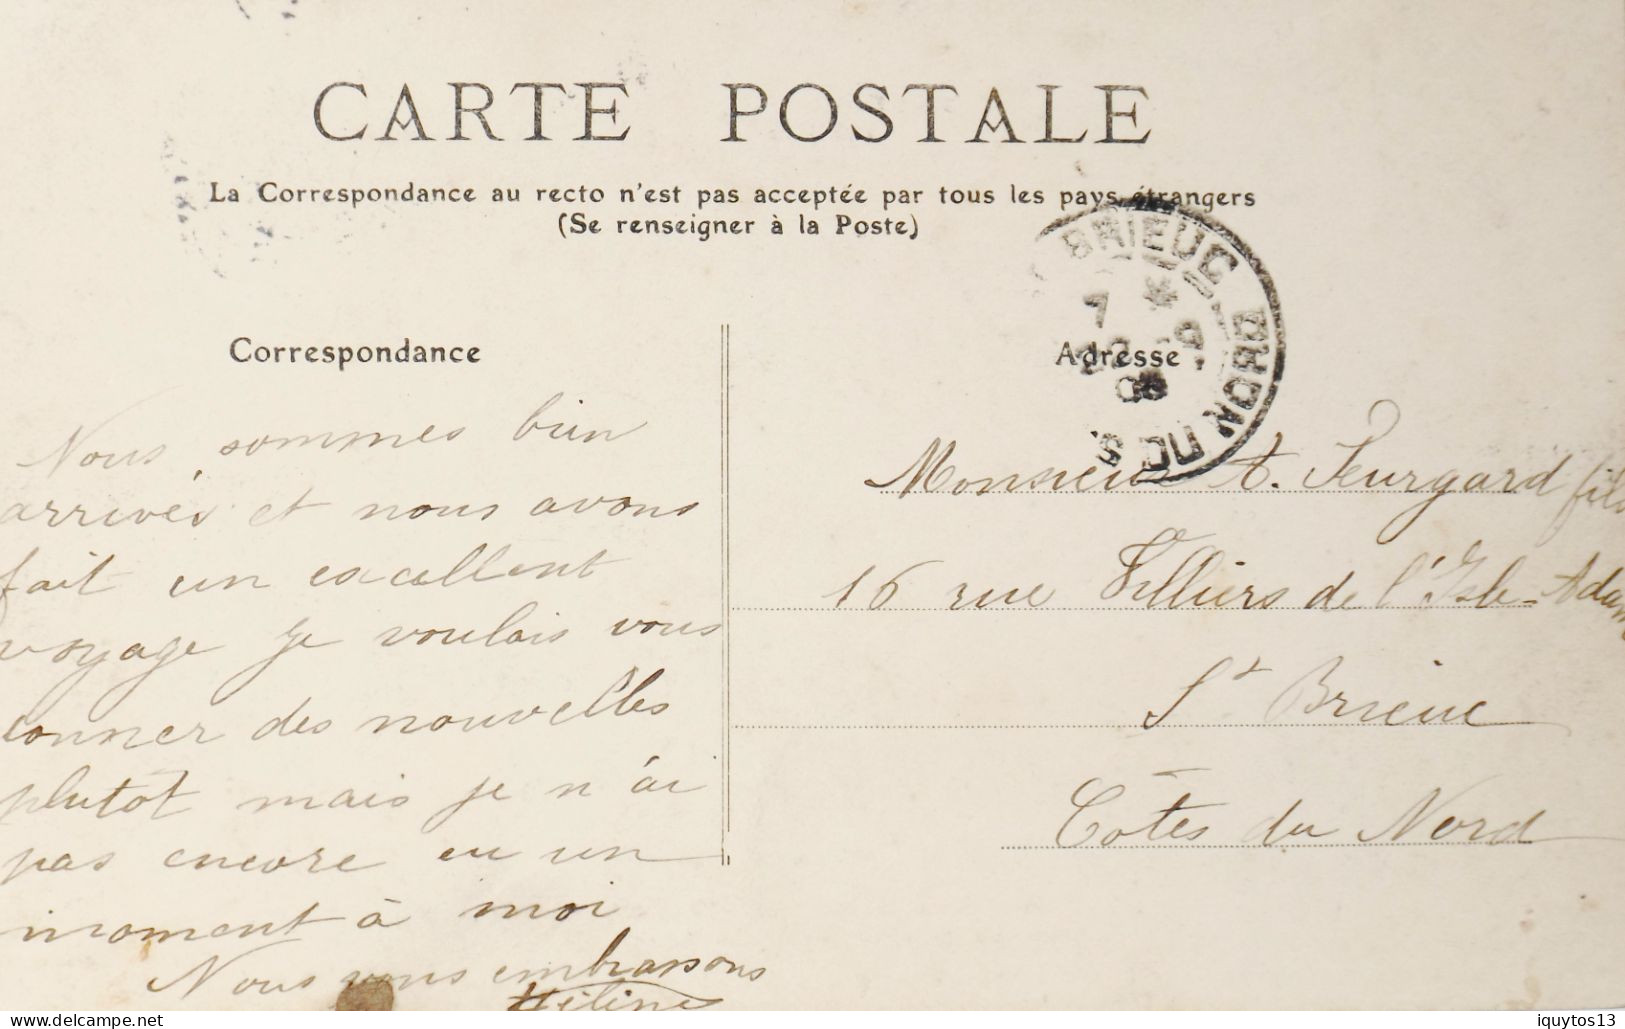 CARTE POSTALE
La Correspondance au recto n'est pas acceptée par tous les pays étrangers
(Se renseigner à la Poste)
BRIEUC
7 *
08
Correspondance
Nous sommes bien
arrivés et nous avons
fait un excellent
voyage je voulais vous
donner des nouvelles
plutot mais je n'ai
pas encore eu un
moment à moi
Nous vous embrassons
Adresse
Monsieur A. Feurgard fils
16 rue Villiers de l'Isle-Adam
St Brieuc
Côtes du Nord
delcampe.net
iquytos13